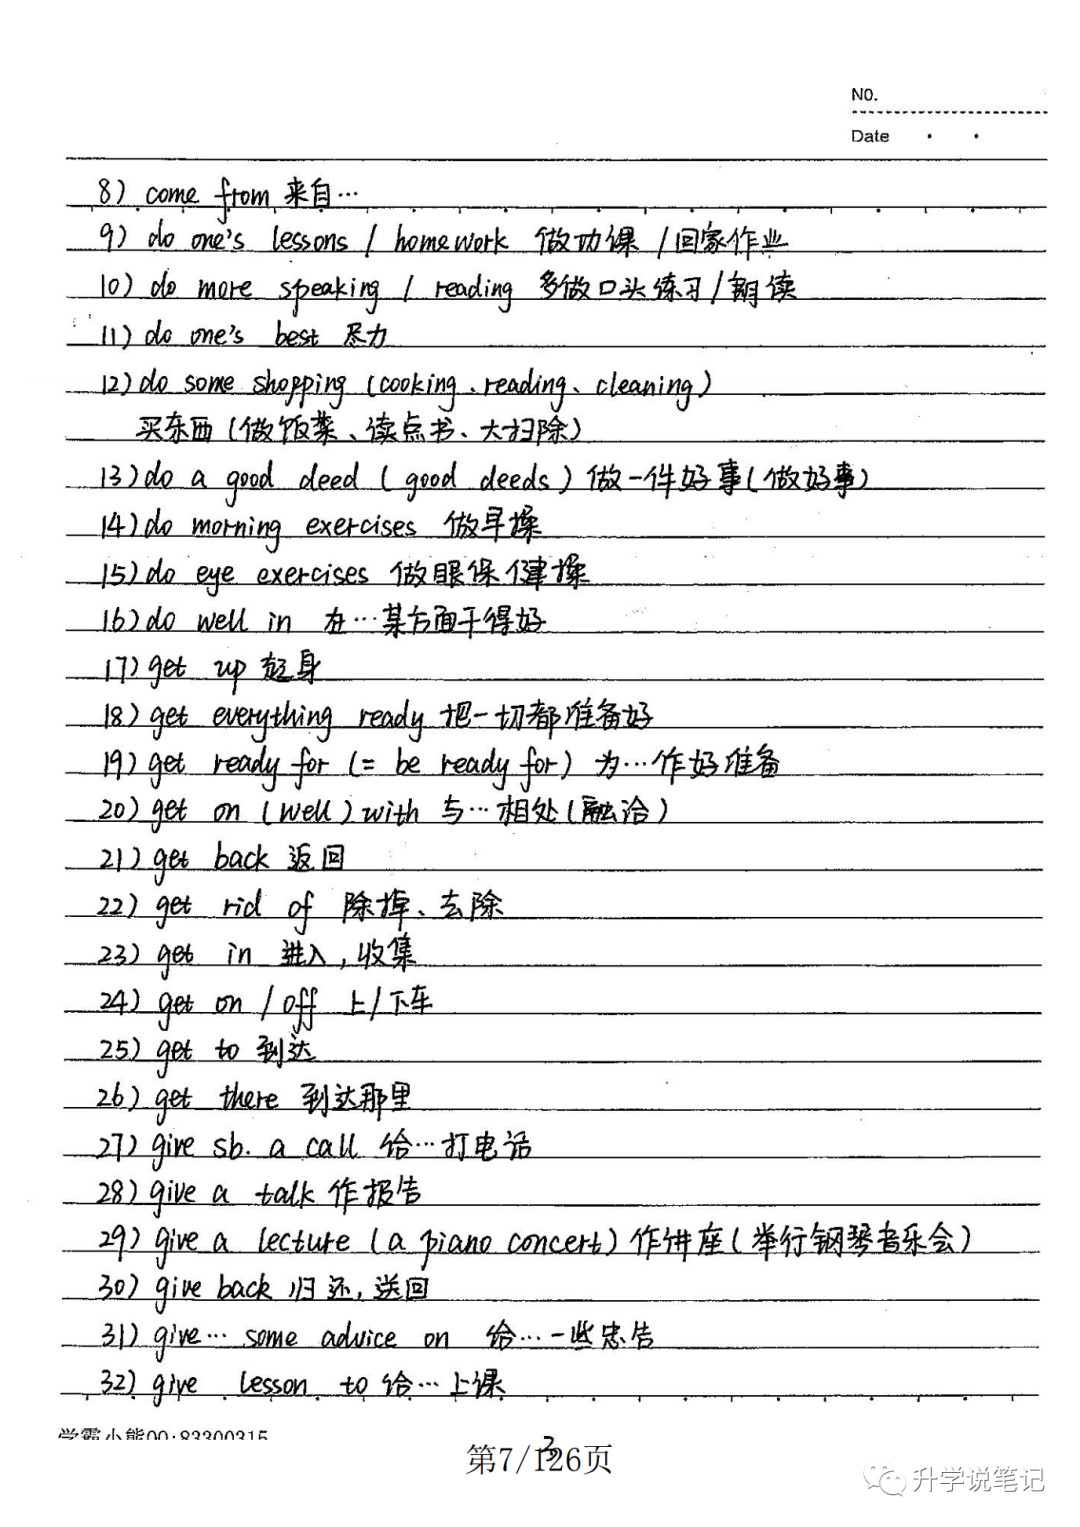 NO.
Date
8) come from 来自…
9) do one's lessons / homework 做功课 / 回家作业
10) do more speaking / reading 多做口头练习 / 朗读
11) do one's best 尽力
12) do some shopping (cooking、reading、cleaning)
买东西 (做饭菜、读点书、大扫除)
13) do a good deed (good deeds) 做一件好事 (做好事)
14) do morning exercises 做早操
15) do eye exercises 做眼保健操
16) do well in 在…某方面干得好
17) get up 起身
18) get everything ready 把一切都准备好
19) get ready for (= be ready for) 为…作好准备
20) get on (well) with 与…相处 (融洽)
21) get back 返回
22) get rid of 除掉、去除
23) get in 进入, 收集
24) get on / off 上/下车
25) get to 到达
26) get there 到达那里
27) give sb. a call 给…打电话
28) give a talk 作报告
29) give a lecture (a piano concert) 作讲座 (举行钢琴音乐会)
30) give back 归还, 送回
31) give… some advice on 给…一些忠告
32) give lesson to 给…上课
学霸小熊QQ:83300315
3
第7/126页
升学说笔记